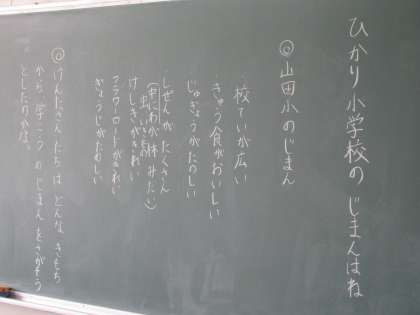 ひかり小学校のじまんはね
◎山田小のじまん
・校ていが広い
・きゅう食がおいしい
・じゅぎょうがたのしい
・しぜんがたくさん
けしきがきれい
フラワーロードがきれい
ぎょうじがたのしい
◎けんたさんたちはどんなきもち
から学こうのじまんをさがそう
としたのかな。